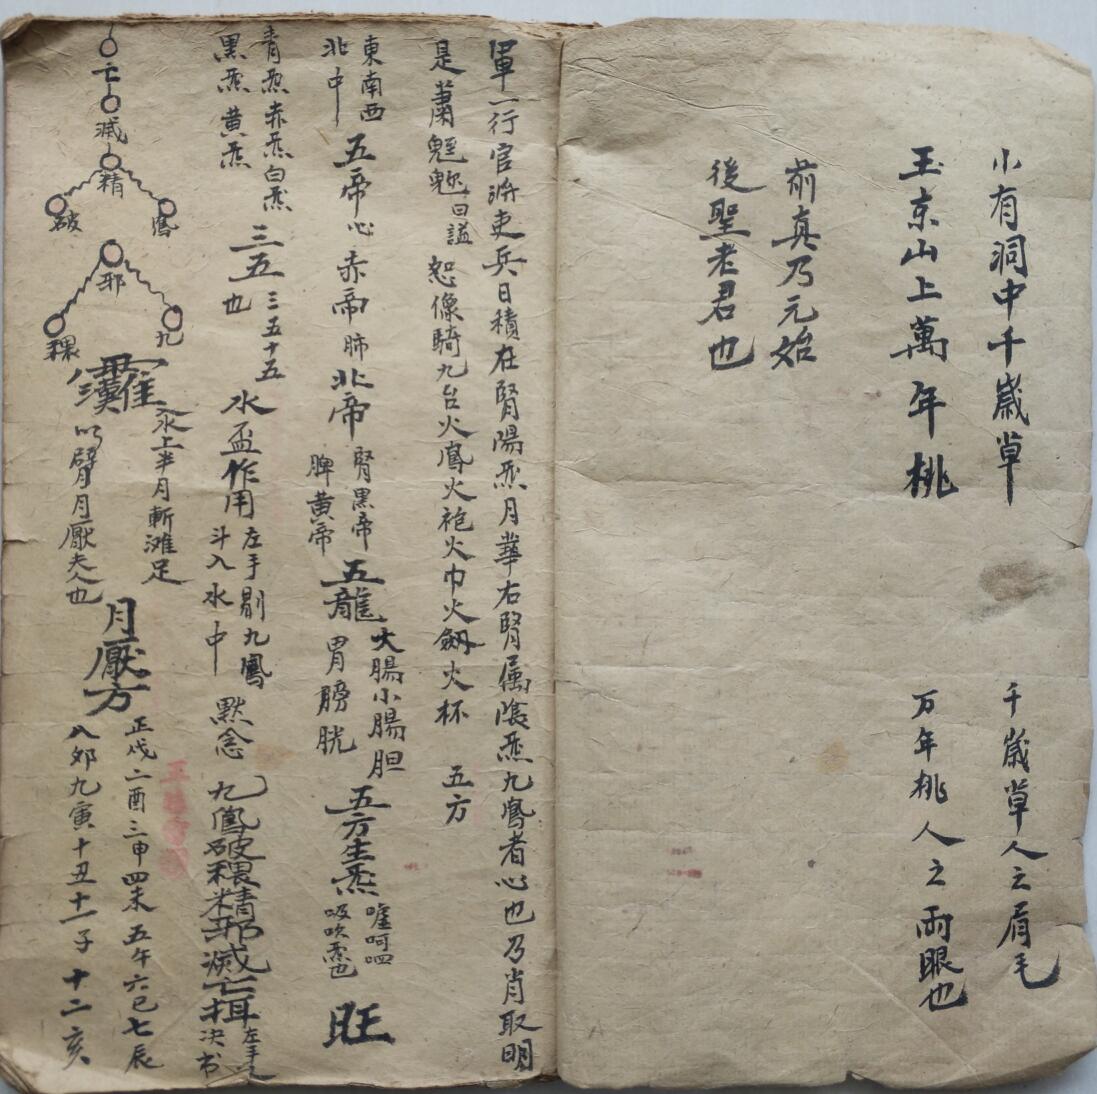 小有洞中千歲草　千歲草人之眉毛
玉京山上萬年桃　万年桃人之兩眼也
前真乃元始
後聖老君也
軍一行官將吏兵日積在腎陽炁月華右腎属陰炁九鳳者心也乃肖取明
是蕭 曰謚 恕像騎九台火鳳火袍火巾火劔火杯　五方
東南西
北中
五帝
心赤帝肺北帝
腎黑帝
脾黄帝
五龍
大腸小腸胆
胃膀胱
五方生炁
呵呬
吸吹也
旺
青炁赤炁白炁
黑炁黄炁
三五
三五十五
也
水盃作用
左手剔九鳳
斗入水中
默念
九鳳破穢精邪滅亡
左手
决书
亡
滅
精
鳳
破
邪
九
穢
上半月斬滩足
以臂月厭夫人也
月厭方
正戌二酉三申四未五午六巳七辰
八卯九寅十丑十一子十二亥